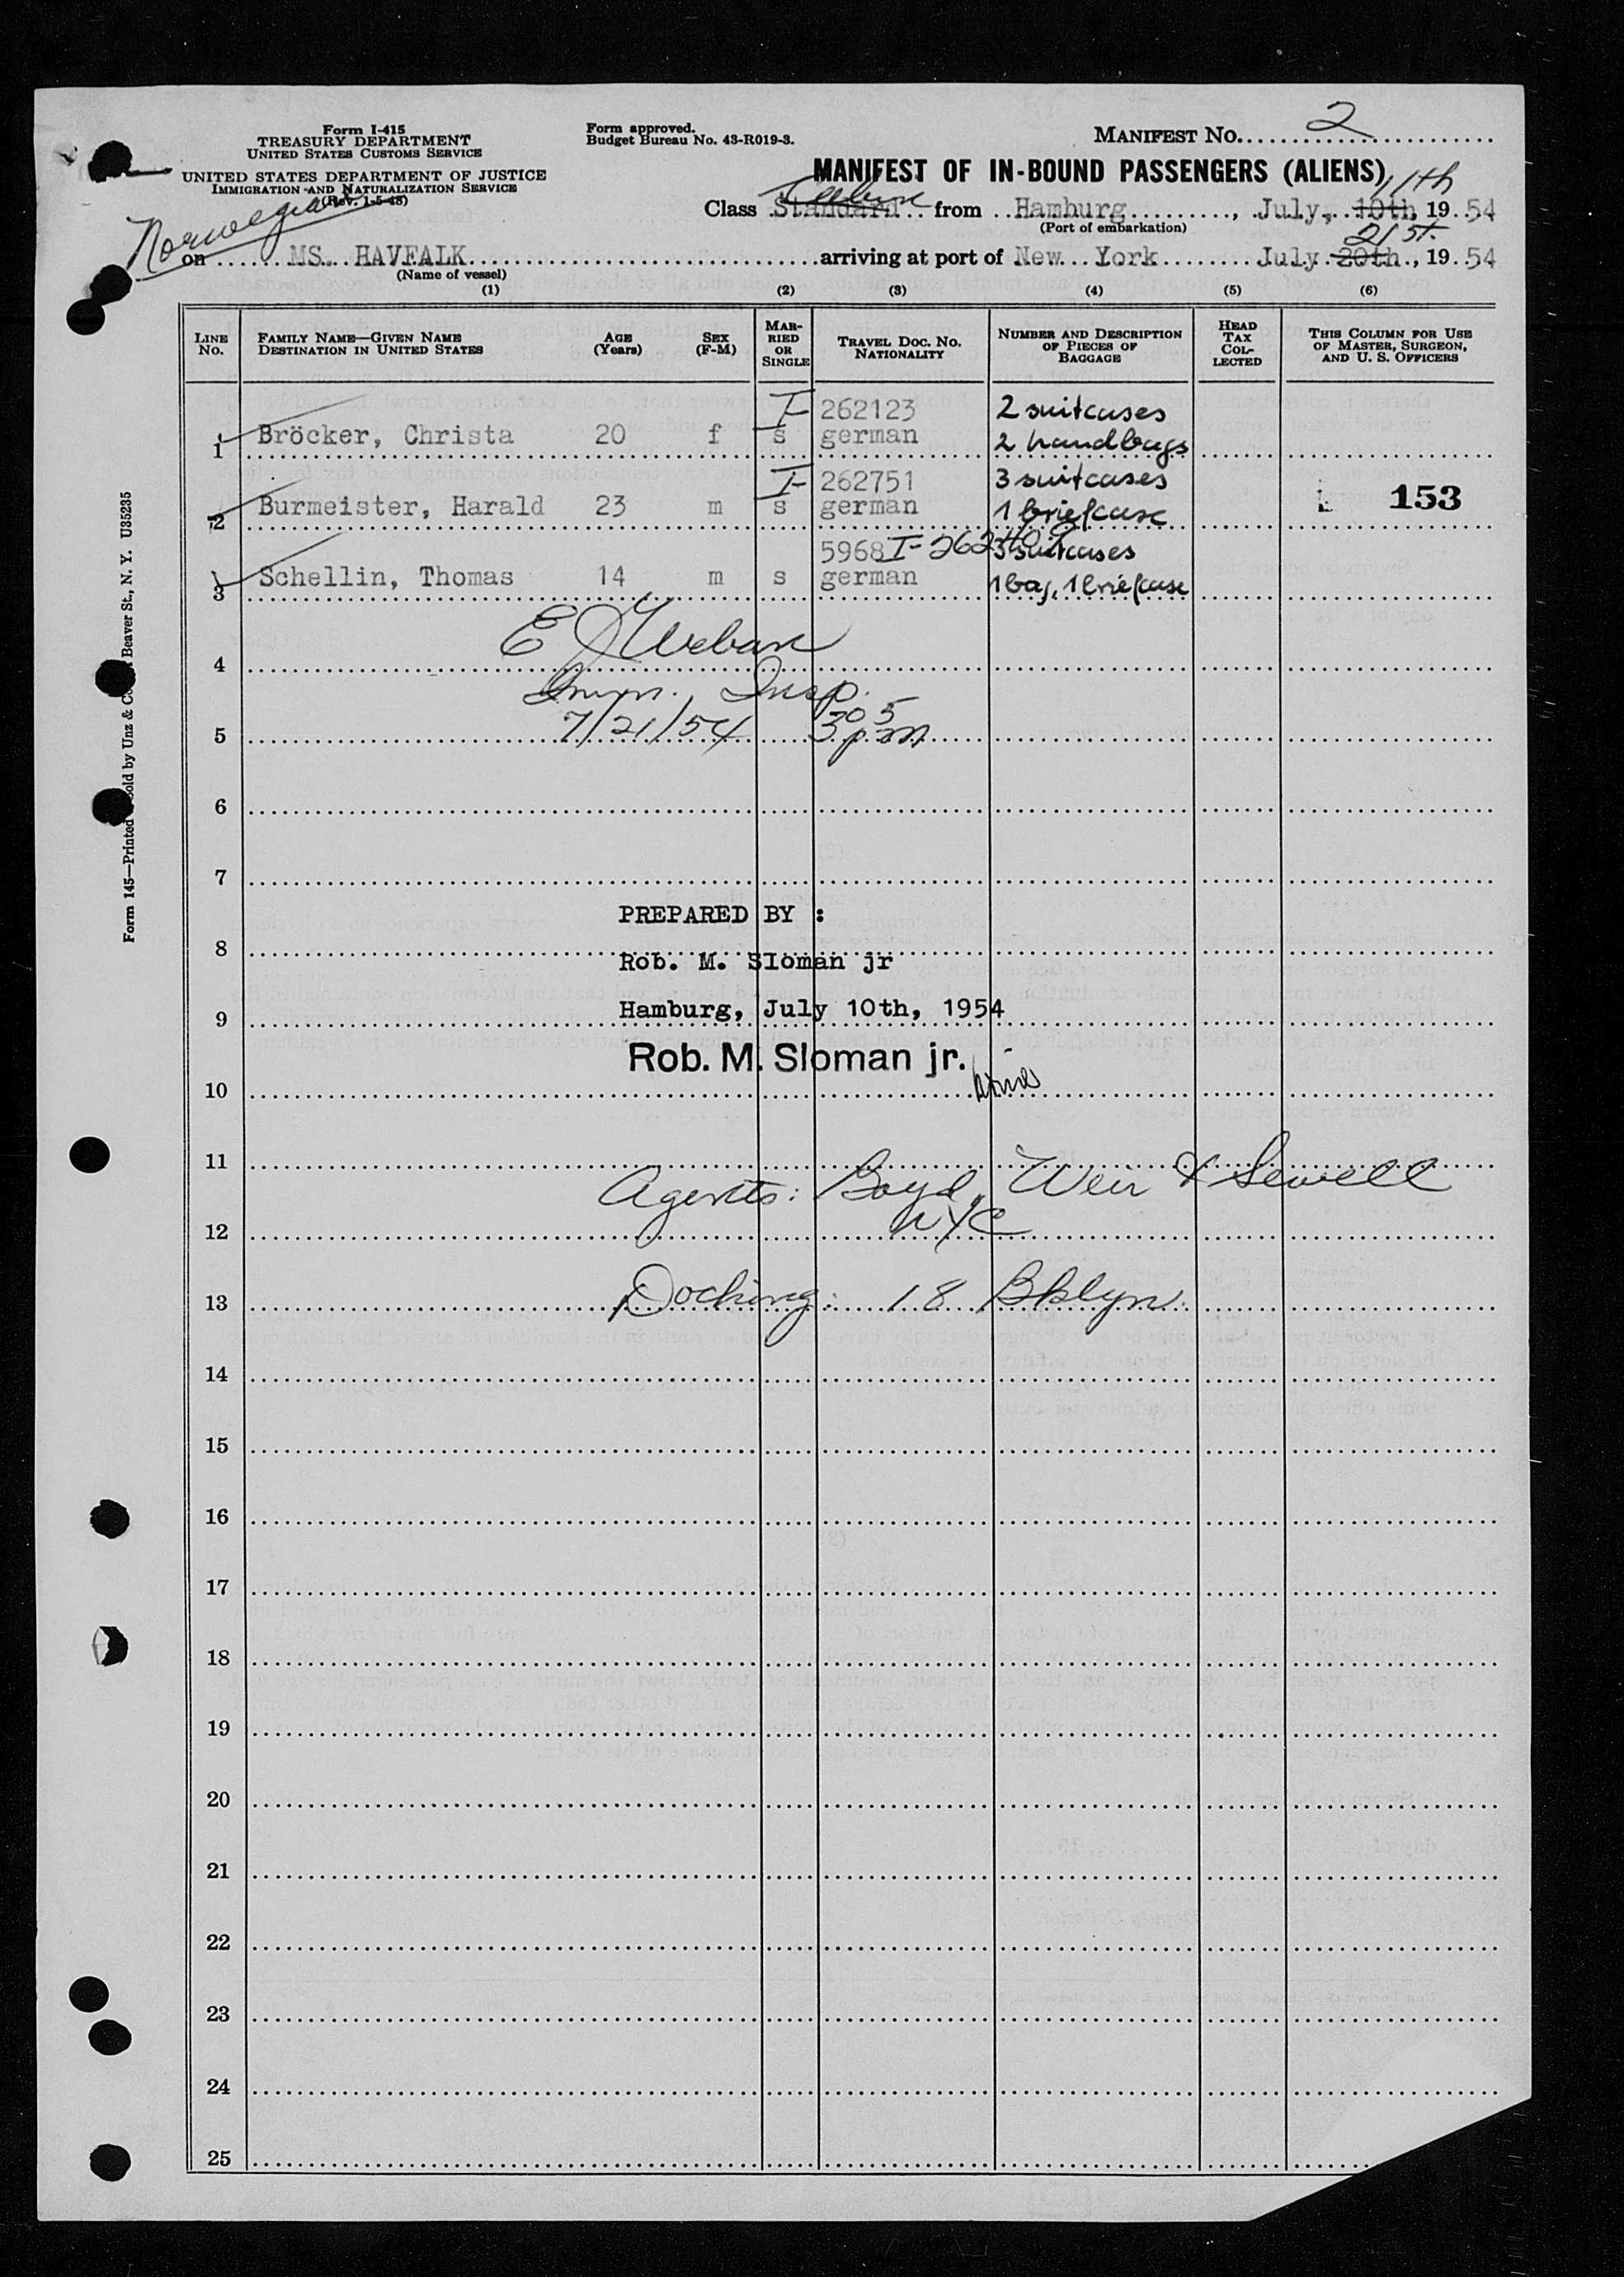 Form I-415
TREASURY DEPARTMENT
UNITED STATES CUSTOMS SERVICE
UNITED STATES DEPARTMENT OF JUSTICE
IMMIGRATION AND NATURALIZATION SERVICE
(Rev. 1-5-48)
Form approved.
Budget Bureau No. 43-R019-3.
MANIFEST No. 2
MANIFEST OF IN-BOUND PASSENGERS (ALIENS)
11th
Class Standard from Hamburg, July, 10th, 1954
(Port of embarkation)
Norwegian
21st.
on MS. HAVFALK arriving at port of New York July 20th, 1954
(Name of vessel)
(1) (2) (3) (4) (5) (6)
LINE No.
FAMILY NAME—GIVEN NAME
DESTINATION IN UNITED STATES
AGE (Years)
SEX (F-M)
MARRIED OR SINGLE
TRAVEL DOC. NO.
NATIONALITY
NUMBER AND DESCRIPTION OF PIECES OF BAGGAGE
HEAD TAX COLLECTED
THIS COLUMN FOR USE OF MASTER, SURGEON, AND U. S. OFFICERS
I- 262123 2 suitcases
1 Bröcker, Christa 20 f s german 2 handbags
I- 262751 3 suitcases
2 Burmeister, Harald 23 m s german 1 briefcase 153
5968 I-262409 3 suitcases
3 Schellin, Thomas 14 m s german 1 bag, 1 briefcase
4 E J Urban
Imm. Insp.
5 7/21/54 305 pm
6
7
PREPARED BY :
8
Rob. M. Sloman jr
Hamburg, July 10th, 1954
9
Rob. M. Sloman jr.
10
11
Agents: Boyd, Weir & Sewell
NYC
12
13 Docking: 18 Bklyn.
14
15
16
17
18
19
20
21
22
23
24
25
Form 145—Printed
Sold by Unz & Co
Beaver St., N. Y. U35235